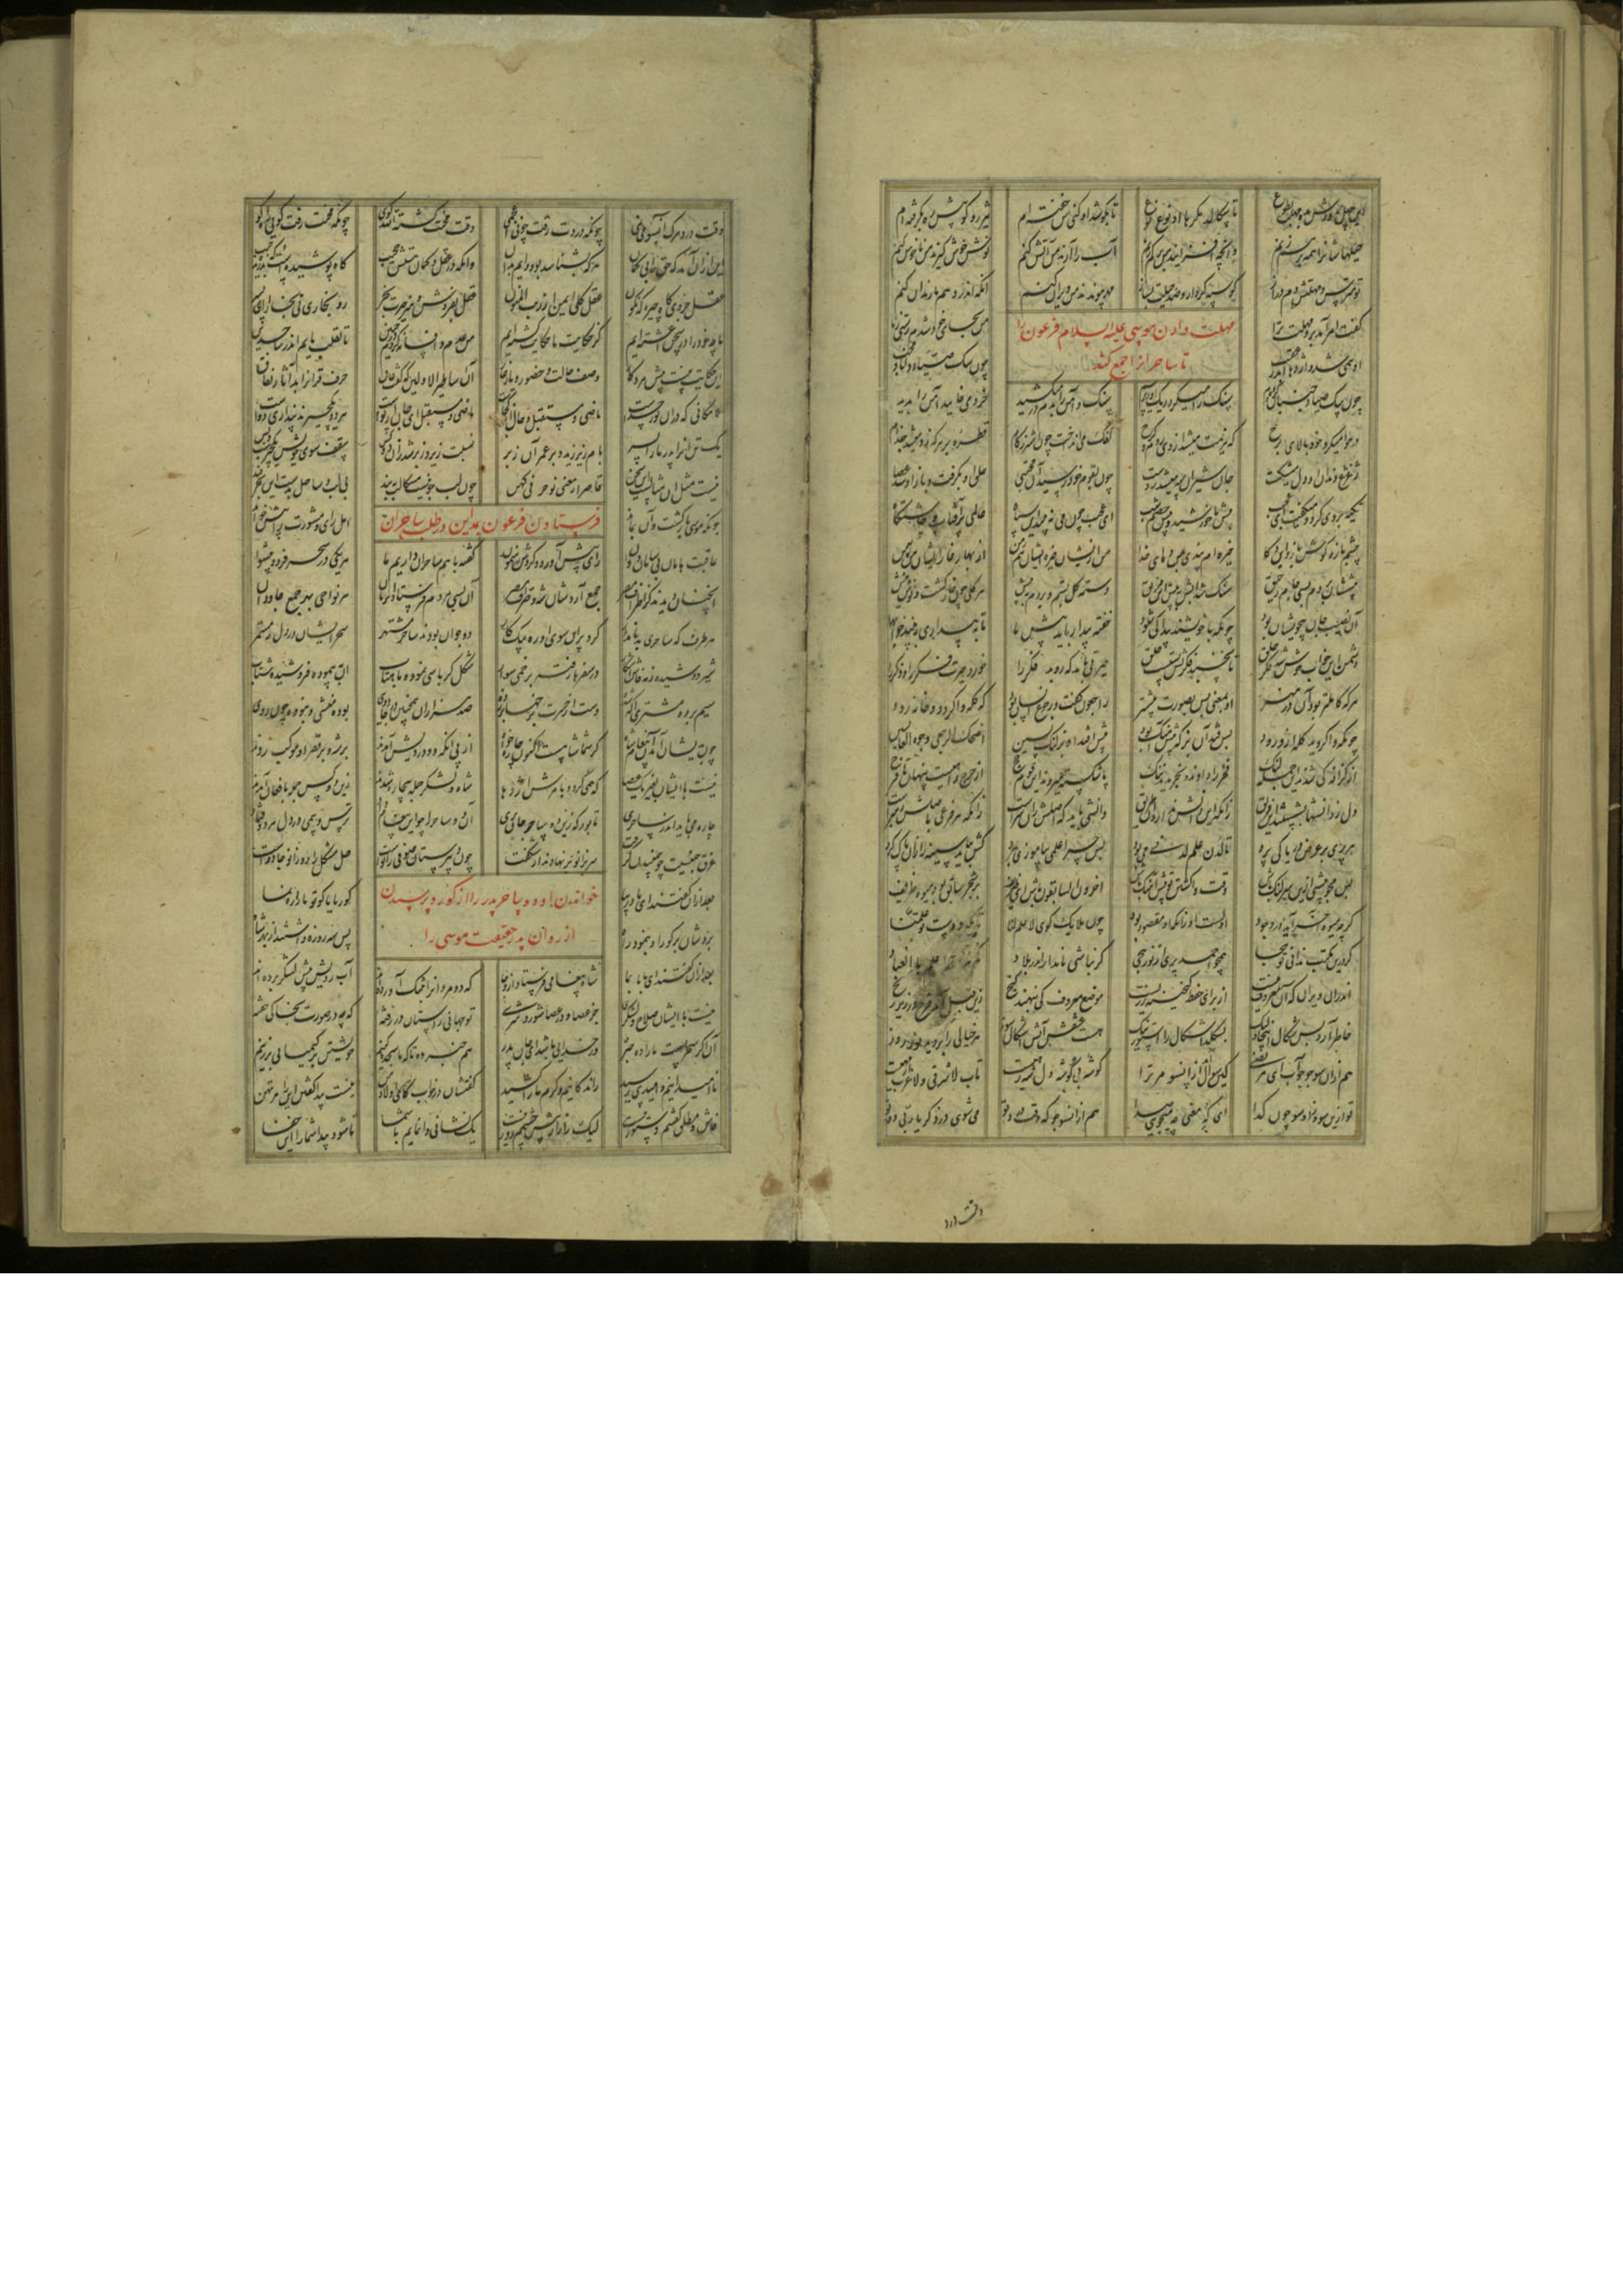 حیلهاشانرا همه برهم زنم وانچه افزایند من بر کم زنم آب را آرند من آتش کنم نوش خوش گیرند من ناخوش کنم
تو مترس و مهلتش ده دم دراز گو سپه گرد آر و صد حیلت بساز مهر پیوندند من ویران کنم آنکه اندر وهم نارند آن کنم
مهلت دادن موسی علیه السلام فرعون را
تا ساحرانرا جمع کند
گفت امر آمد برو مهلت ترا من بجای خود شدم رستی ز ما
او همی شد و اژدها اندر عقب چون سگ صیاد دانا و محب
چون سگ صیاد جنبان کرده دم سنگ را میکرد ریک او زیر سم سنگ و آهن را بدم در میکشید خرد می خایید آهن را پدید
در هوا میکرد خود بالای برج که هزیمت میشد از وی روم و گرج کفک می انداخت چون اشتر ز کام قطره بر هر که زد میشد جذام
ژغژغ دندان او دل میشکست جان شیران سیه میشد ز دست چون بقوم خود رسید آن مجتبی شدق او بگرفت و باز او شد عصا
تکیه بر وی کرد و میگفت ای عجب پیش ما خورشید و پیش خصم شب ای عجب چون می نبیند این سپاه عالمی پر آفتاب چاشتگاه
چشم باز و گوش باز و این ذکا خیره ام در چشم بندی خدا من ز ایشان خیره ایشان هم ز من از بهاری خار ایشان من سمن
پیششان بردم بسی جام رحیق سنگ شد آبش به پیش این فریق دسته گل بستم و بردم به پیش هر گلی چون خار گشت و نوش نیش
آن نصیب جان بیخویشان بود چونکه با خویشند پیدا کی شود خفته بیدار باید پیش ما تا به بیداری ببیند خوابها
دشمن این خواب خوش شد فکر خلق تا نخسبد فکرتش بستست حلق حیرتی باید که روبد فکر را خورده حیرت فکر را و ذکر را
هر که کاملتر بود او در هنر او بمعنی پس بصورت پیشتر راجعون گفت و رجوع این سان بود که گله وا گردد و خانه رود
چونکه وا گردید گله از ورود پس فتد آن بز که پیش آهنگ بود پیش افتد آن بز لنگ پسین اضحک الرجعی وجوه العابسین
از گزافه کی شدند این قوم لنگ فخر را دادند و بخریدند ننگ پا شکسته میروند این قوم حج از حرج راهیست پنهان تا فرج
دل ز دانشها بشستند این فریق زانکه این دانش نداند آن طریق دانشی باید که اصلش زان سرست زانکه هر فرعی باصلش رهبرست
هر پری بر عرض دریا کی پرد تا لدن علم لدنی می برد پس چرا علمی بیاموزی بمرد کش بباید سینه را زان پاک کرد
پس مجو پیشی ازین سر لنگ باش وقت وا گشتن تو پیش آهنگ باش آخرون السابقون باش ای ظریف بر شجر سابق بود میوه طریف
گرچه میوه آخر آید در وجود اولست او زانکه او مقصود بود چون ملایک گوی لا علم لنا
گر درین مکتب ندانی تو هجا همچو احمد پری از نور حجی گر نباشی نامدار اندر بلاد
اندران ویران که آن معروف نیست از برای حفظ گنجینه زریست موضع معروف کی بنهند گنج زین قبل آمد فرج در زیر رنج
خاطر آرد بس شکال اینجا ولیک بگسلد اشکال را استور نیک هست عشقش آتشی اشکال سوز هر خیالی را بروبد نور روز
هم از آن سو جو جواب ای مرتضی کین سوال آمد از آن سو مر ترا گوشه بی گوشه دل شه رهیست تاب لا شرقی و لا غرب از مهیست
تو ازین سو و ازان سو چون گدا ای که معنی چه میجویی صدا هم از آنسو جو که وقت درد تو می شوی در ذکر یا ربی دوتو
وقت درد
وقت درد و مرگ آنسو می نمی چونکه دردت رفت چونی اعجمی وقت محنت گشته الله گوی چونکه محنت رفت گویی راه کو
این از آن آمد که حق را بی گمان هر که بشناسد بود دایم بر آن وانکه در عقل و گمان هستش حجیب گاه پوشیدست و گه بدریده جیب
عقل جزوی گاه چیره گه نگون عقل کلی ایمن از ریب المنون عقل بفروش و هنر حیرت بخر رو بخواری نی بخارا ای پسر
ما چه خود را در سخن آغشته ایم کز حکایت ما حکایت گشته ایم من عدم و افسانه گردم در حنین تا تقلب یابم اندر ساجدین
این حکایت نیست پیش مرد کار وصف حالست و حضور یار غار آن اساطیر الاولین که گفت عاق حرف قرانرا بد آثار نفاق
لامکانی که درو نور خداست ماضی و مستقبل و حال از کجاست ماضی و مستقبل ای جان از تو است هر دو یک چیزند پنداری دو است
یک تنی او را پدر ما را پسر بام زیر زید و بر عمرو آن زبر نسبت زیر و زبر شد زان دو کس سقف سوی خویش یک چیزست و بس
نیست مثل آن مثالست این سخن قاصر از معنی نو حرف کهن چون لب جو نیست مشکا لب ببند بی لب و ساحل بدست این بحر قند
فرستادن فرعون بمداین در طلب ساحران
چونکه موسی باز گشت و او بماند اهل رای و مشورت را پیش خواند
عاقبت هامان بی سامان و دون رای پیش آورد و کردش رهنمون گفت شاها هم ساحران داریم ما هر یکی در سحر فرد و پیشوا
آنچنان دیدند کز اطراف مصر جمع آردشان شه و صراف مصر او بسی مردم فرستاد آن زمان هر نواحی بهر جمع جادوان
هر طرف که ساحری بد نامدار کرد پران سوی او ده پیک کار دو جوان بودند ساحر مشتهر سحر ایشان در دل مه مستمر
شیر دوشیده ز مه فاش آشکار در سفرها رفته بر خمی سوار شکل کرباسی نموده ماهتاب آن بپیموده فروشیده شتاب
سیم برده مشتری آگه شده دست از حسرت برخها بر زده صد هزاران همچنین در جادوی بوده منشی و نبوده چون روی
چون بدیشان آمد آن پیغام شاه کز شما شاهست اکنون چاره خواه از پی آنکه دو درویش آمدند بر شه و بر قصر او موکب زدند
نیست با ایشان بغیر یک عصا که همی گردد بامرش اژدها شاه و لشکر جمله بیچاره شدند زین دو کس جمله بافغان آمدند
چاره می باید اندر ساحری تا بود که زین دو ساحر جان بری آن دو ساحر را چو این پیغام داد ترس و مهری در دل هر دو فتاد
عرق جنسیت چو جنبیدن گرفت سر بزانو بر نهادند از شگفت چون دبیرستان صوفی زانوست حل مشکل را دو زانو جادوست
خواندن آن دو ساحر پدر را از گور و پرسیدن
از روان پدر حقیقت موسی را
بعد از آن گفتند ای مادر بیا گور بابا کو تو ما را ره نما
بردشان بر گور او بنمود راه پس سه روزه داشتند از بهر شاه
بعد از آن گفتند ای بابا بما شاه پیغامی فرستاد از وجا که دو مرد او را بتنگ آورده اند آب رویش پیش لشکر برده اند
نیست با ایشان سلاح و لشکری جز عصا و در عصا شور و شری تو جهان راستان در رفته گرچه در صورت بخاکی خفته
آن اگر سحرست ما را ده خبر ور خدایی باشد ای جان پدر هم خبر ده تا که ما سجده کنیم خویشتن بر کیمیایی بر زنیم
ناامیدانیم و امیدی رسید راندگانیم و کرم ما را کشید گفتشان در خواب کای اولاد من نیست پیدا گفتن این را مرتهن
فاش و مطلق گفتنم دستور نیست لیک راز از پیش چشمم دور نیست لیک نشانی وا نمایم با شما تا شود پیدا شما را این خفا